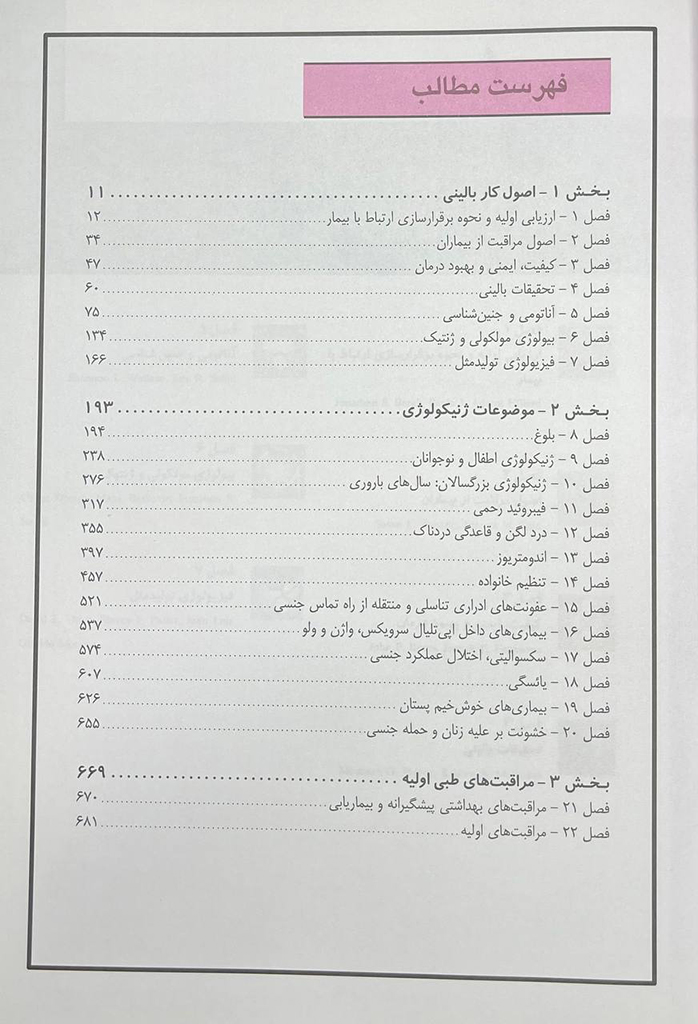 فهرست مطالب
بخش ۱ - اصول کار بالینی ........ ۱۱
فصل ۱ - ارزیابی اولیه و نحوه برقرارسازی ارتباط با بیمار ........ ۱۲
فصل ۲ - اصول مراقبت از بیماران ........ ۳۴
فصل ۳ - کیفیت، ایمنی و بهبود درمان ........ ۴۷
فصل ۴ - تحقیقات بالینی ........ ۶۰
فصل ۵ - آناتومی و جنین‌شناسی ........ ۷۵
فصل ۶ - بیولوژی مولکولی و ژنتیک ........ ۱۳۴
فصل ۷ - فیزیولوژی تولیدمثل ........ ۱۶۶
بخش ۲ - موضوعات ژنیکولوژی ........ ۱۹۳
فصل ۸ - بلوغ ........ ۱۹۴
فصل ۹ - ژنیکولوژی اطفال و نوجوانان ........ ۲۳۸
فصل ۱۰ - ژنیکولوژی بزرگسالان: سال‌های باروری ........ ۲۷۶
فصل ۱۱ - فیبروئید رحمی ........ ۳۱۷
فصل ۱۲ - درد لگن و قاعدگی دردناک ........ ۳۵۵
فصل ۱۳ - اندومتریوز ........ ۳۹۷
فصل ۱۴ - تنظیم خانواده ........ ۴۵۷
فصل ۱۵ - عفونت‌های ادراری تناسلی و منتقله از راه تماس جنسی ........ ۵۲۱
فصل ۱۶ - بیماری‌های داخل اپی‌تلیال سرویکس، واژن و ولو ........ ۵۳۷
فصل ۱۷ - سکسوالیتی، اختلال عملکرد جنسی ........ ۵۷۴
فصل ۱۸ - یائسگی ........ ۶۰۷
فصل ۱۹ - بیماری‌های خوش‌خیم پستان ........ ۶۲۶
فصل ۲۰ - خشونت بر علیه زنان و حمله جنسی ........ ۶۵۵
بخش ۳ - مراقبت‌های طبی اولیه ........ ۶۶۹
فصل ۲۱ - مراقبت‌های بهداشتی پیشگیرانه و بیماریابی ........ ۶۷۰
فصل ۲۲ - مراقبت‌های اولیه ........ ۶۸۱